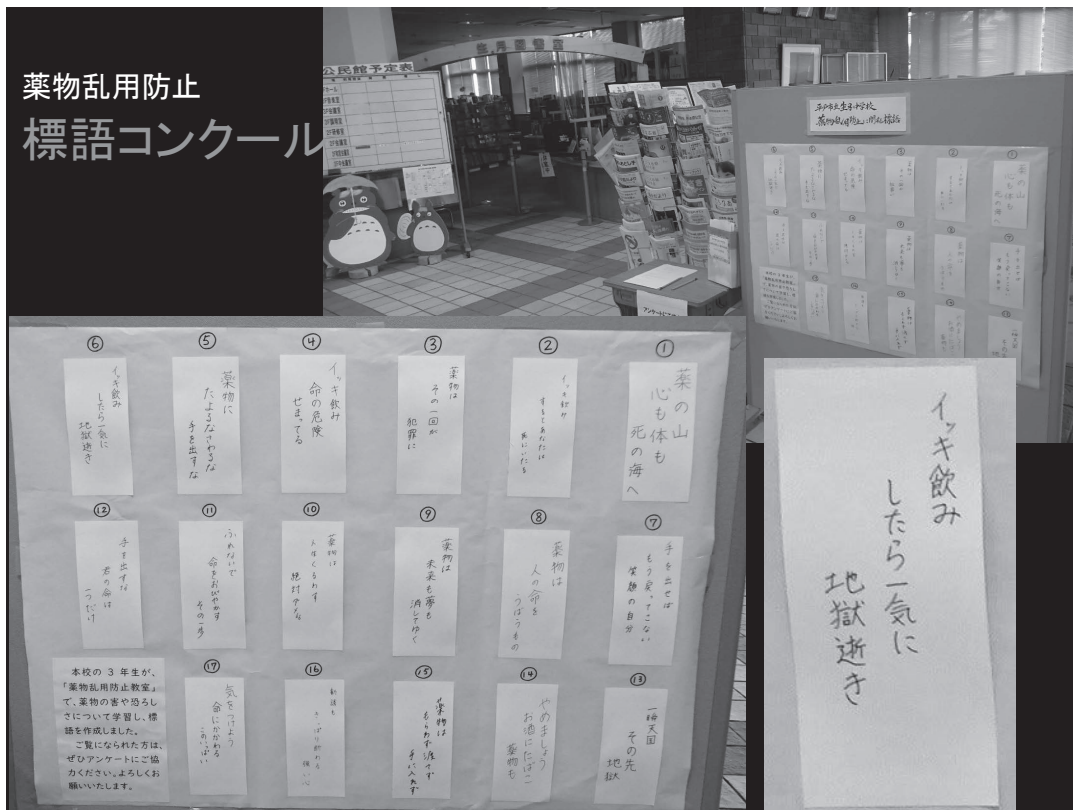 薬物乱用防止
標語コンクール
公民館予定表
平戸市立生月中学校
「薬物乱用防止」に関する標語
①
薬の山
心も体も
死の海へ
②
イッキ飲み
するとあなたは
死にいたる
③
薬物は
その一回が
犯罪に
④
イッキ飲み
命の危険
せまってる
⑤
薬物に
たよるなさわるな
手を出すな
⑥
イッキ飲み
したら一気に
地獄逝き
⑦
手を出せば
もう戻ってこない
笑顔の自分
⑧
薬物は
人の命を
うばうもの
⑨
薬物は
未来も夢も
消してゆく
⑩
薬物は
人生くるわす
絶対ダメ
⑪
ふみないで
命をおびやかす
その一歩
⑫
手を出すな
君の命は
一つだけ
⑬
一時天国
その先
地獄
⑭
やめましょう
お酒にたばこ
薬物も
⑮
薬物は
もらわず渡せず
手に入れず
⑯
きっぱり断わる
強い心
⑰
気をつけよう
命にかかわる
このいっぱい
本校の3年生が、
「薬物乱用防止教室」
で、薬物の害や恐ろし
さについて学習し、標
語を作成しました。
ご覧になられた方は、
ぜひアンケートにご協
力ください。よろしくお
願いいたします。
イッキ飲み
したら一気に
地獄逝き